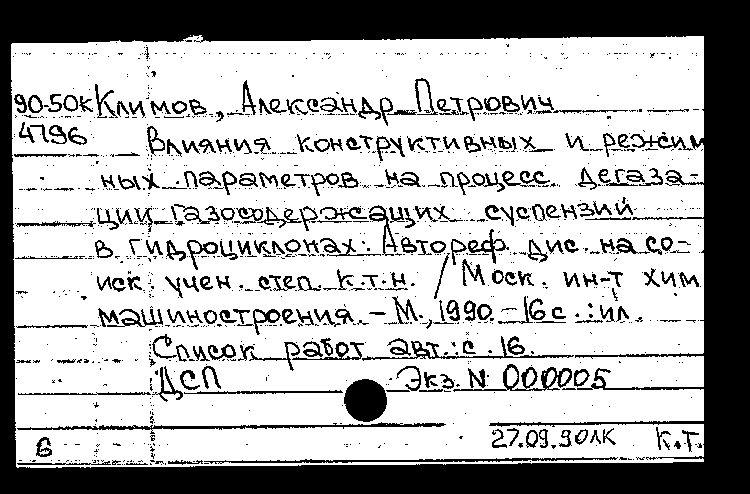 90-50к Климов, Александр Петрович
4796 Влияния конструктивных и режим
ных параметров на процесс дегаза-
ции газосодержащих суспензий
в гидроциклонах: Автореф. дис. на со-
иск. учен. степ. к.т.н. / Моск. ин-т хим
машиностроения. - М., 1990. - 16 с. : ил.
Список работ авт.: с. 16.
ДСП Экз. N 000005
27.09.90ЛК К.Т.
6